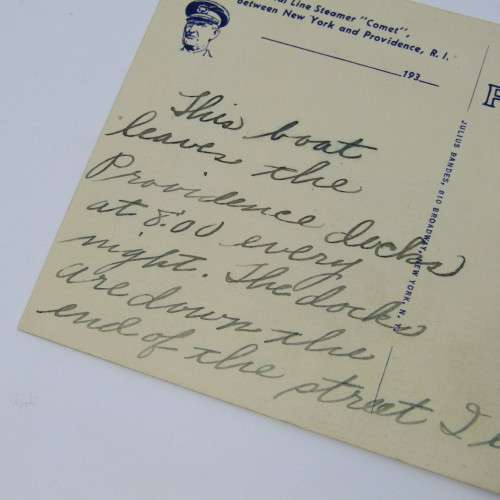 Line Steamer "Comet",
between New York and Providence, R. I.
193
This boat
leaves the
Providence docks
at 8:00 every
night. The docks
are down the
end of the street I
JULIUS BANDES, 810 BROADWAY, NEW YORK, N. Y.